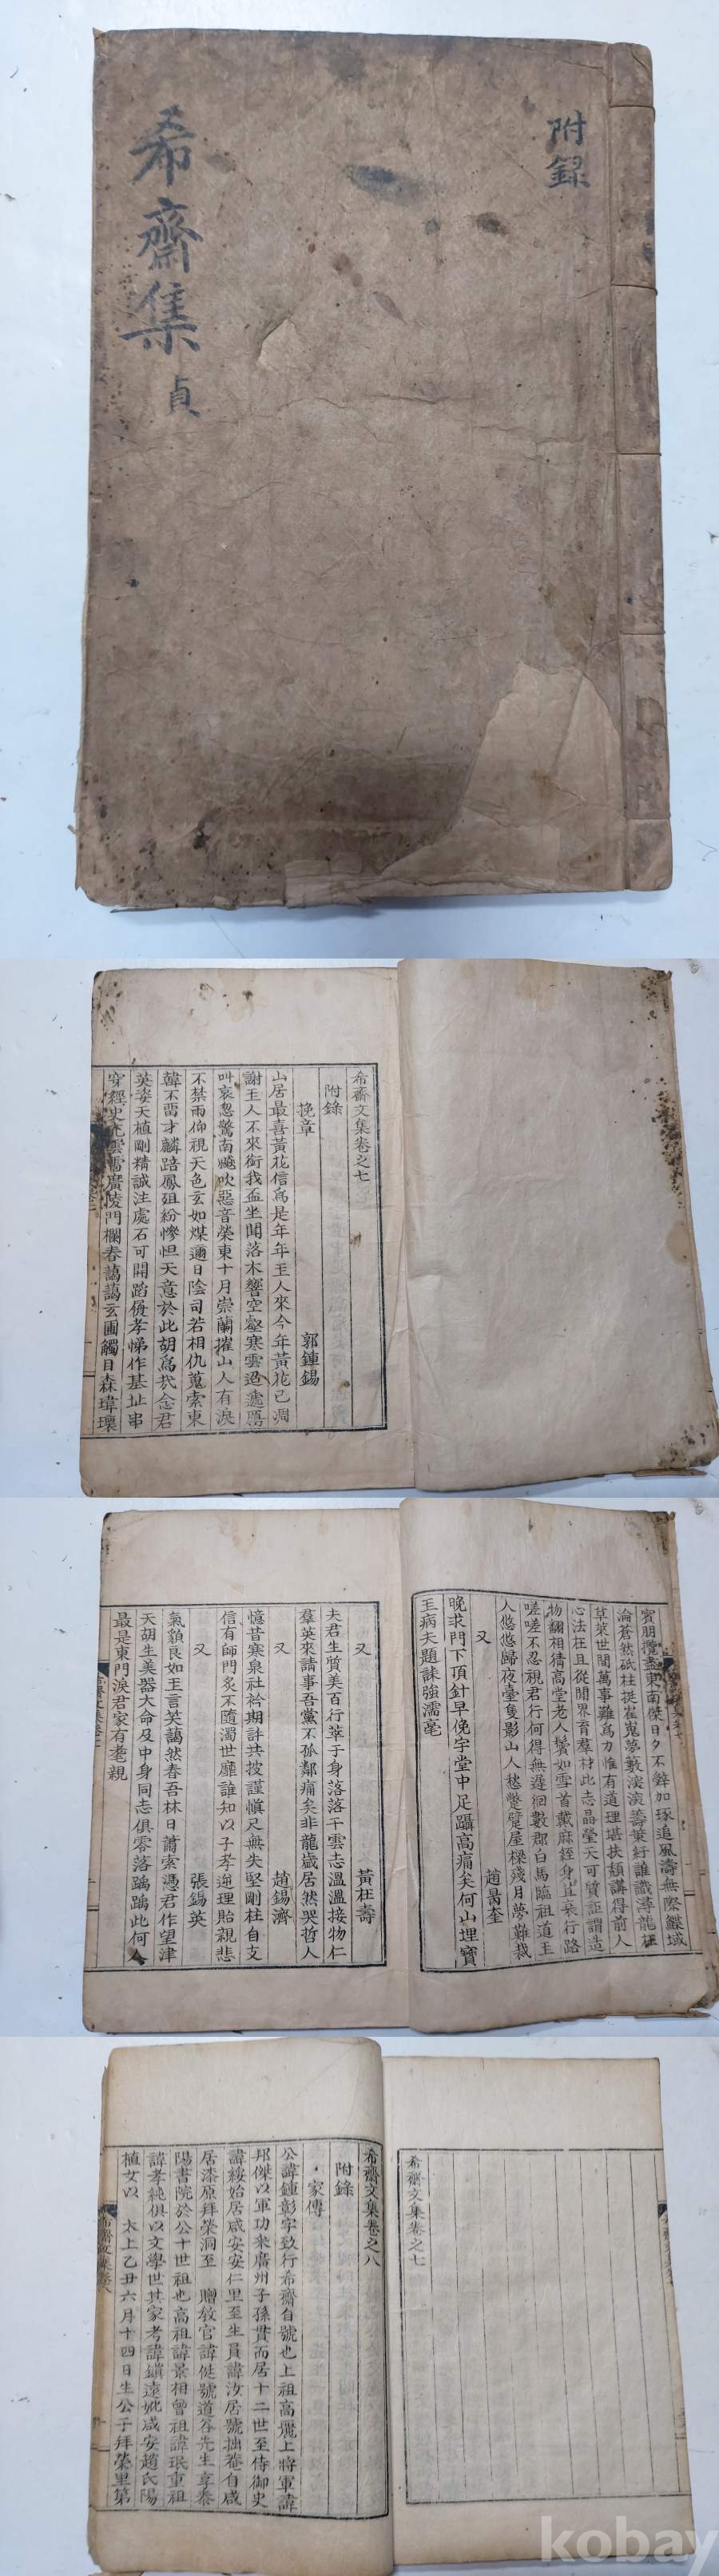 附錄
希齋集 貞
希齋文集卷之七
附錄
挽章
郭鍾錫
山居最喜黃花信爲是年年主人來今年黃花已凋
謝主人不來銜我盃坐聞落木響空壑寒雲
叫哀忽驚南颷吹惡音榮東十月崇蘭摧山人有淚
不禁雨仰視天色玄如煤邇日陰司若相仇蒐索東
韓不畱才麟踣鳳殂紛慘怛天意於此胡爲哉念君
英姿天植剛精誠注處石可開蹈履孝悌作基址串
穿經史
廣陵門欄春藹藹玄圃觸目森瑋瓌
賓朋攬盡東南傑日夕不辭加琢追風濤無際鰈域
淪蒼然砥柱挺崔嵬夢
草萊世間萬事難爲力惟有道理堪扶頹講得前人
心法在且從開界育羣材此志晶瑩天可質
物翻相猜高堂老人鬢如雪首戴麻絰身苴衰行路
嗟嗟不忍視君行何得無遲徊數郡白馬臨祖道主
人悠悠歸夜臺隻影山人愁蹩躄屋樑殘月夢難裁
又
趙昺奎
晚求門下頂針早俛宇堂中足躡高痛矣何山埋寶
玉病夫題誄強濡毫
又
黃在壽
夫君生質美百行萃于身落落干雲志溫溫接物仁
羣英來請事吾黨不孤鄰痛矣非龍歲居然哭哲人
又
趙錫濟
憶昔寒泉社衿期許共披謹愼尺無失堅剛柱自支
信有師門炙不隨濁世靡誰知以子孝逆理貽親悲
又
張錫英
氣貌良如玉言笑藹然春吾林日蕭索憑君作望津
天胡生美器大命及中身同志俱零落踽踽此何人
最是東門淚君家有耄親
希齋文集卷之七
希齋文集卷之八
附錄
家傳
公諱鍾彰字致行希齋自號也上祖高麗上將軍諱
邦傑以軍功來廣州子孫貫而居十二世至侍御史
諱綏始居咸安安仁里至生員諱汝居號拙菴自咸
居漆原拜榮洞至 贈敎官諱
號道谷先生享泰
陽書院於公十世祖也高祖諱景相曾祖諱珉重祖
諱孝純俱以文學世其家考諱鎭遠妣咸安趙氏陽
植女以 太上乙丑六月十四日生公于拜榮里第
kobay